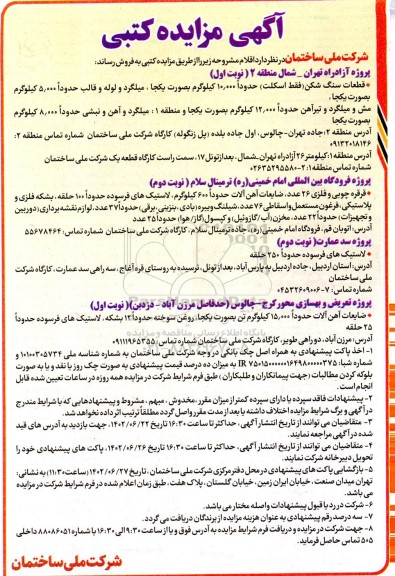 آگهی مزایده کتبی
شرکت ملی ساختمان در نظر دارد اقلام مشروحه زیر را از طریق مزایده کتبی به فروش رساند:
پروژه آزادراه تهران _ شمال منطقه ۲ ( نوبت اول)
• قطعات سنگ شکن (فقط اسکلت) حدوداً ۱۰,۰۰۰ کیلوگرم بصورت یکجا ، میلگرد و لوله و قالب حدوداً ۵,۰۰۰ کیلوگرم
بصورت یکجا ،
مش و میلگرد و تیرآهن حدوداً ۱۲,۰۰۰ کیلوگرم بصورت یکجا و منطقه ۱ : میلگرد و آهن و نبشی حدوداً ۸,۰۰۰ کیلوگرم
بصورت یکجا
آدرس منطقه ۲: جاده تهران-چالوس، اول جاده بلده (پل زنگوله) کارگاه شرکت ملی ساختمان شماره تماس منطقه ۲:
۰۹۱۳۲۰۱۸۱۴۶
آدرس منطقه ۱: کیلومتر ۲۶ آزادراه تهران_شمال، بعد از تونل ۱۷، سمت راست کارگاه قطعه یک شرکت ملی ساختمان
شماره تماس منطقه ۱: ۲-۰۲۶۳۵۲۹۵۵۸۰
پروژه فرودگاه بین المللی امام خمینی(ره) ترمینال سلام ( نوبت دوم)
• قرقره چوبی و فلزی ۲۶ عدد، ضایعات آهن آلات حدوداً ۶۰۰ کیلوگرم، لاستیک های فرسوده حدوداً ۱۰۰ حلقه ، بشکه فلزی و
پلاستیکی ،فرغون مستعمل واسقاطی ۷۶ عدد، شیلنگ ویبره (بادی، بنزینی، برقی) حدوداً ۲۷ عدد، لوازم نقشه برداری (دوربین
و تجهیزات) حدوداً ۲۲ عدد، مخزن (آب/ گازوئیل) و کپسول (گاز/ هوا) حدوداً ۲۵ عدد
آدرس: اتوبان قم، فرودگاه امام خمینی (ره)، جاده ترمینال سلام، کارگاه شرکت ملی ساختمان شماره تماس: ۵۵۶۷۸۴۶۴
پروژه سد عمارت( نوبت دوم)
• لاستیک های فرسوده حدوداً ۲۵۰ حلقه
آدرس: استان اردبیل، جاده اردبیل به پارس آباد، بعد از تونل، نرسیده به روستای قره آغاج، سه راهی سد عمارت ، کارگاه شرکت
ملی ساختمان
شماره تماس: ۷-۰۴۵۳۲۶۰۹۰۰۶
پروژه تعریض و بهسازی محور کرج-چالوس (حدفاصل مرزن آباد - دزدبن)( نوبت اول)
• ضایعات آهن آلات حدوداً ۱۵,۰۰۰ کیلوگرم تن بصورت یکجا، روغن سوخته حدوداً ۱۳ بشکه، لاستیک های فرسوده حدوداً
۲۵ حلقه
آدرس: مرزن آباد، دو راهی طویر، کارگاه شرکت ملی ساختمان شماره تماس: ۰۹۱۱۱۹۶۵۳۵۵
۱- اخذ پاکت پیشنهادی به همراه اصل چک بانکی در وجه شرکت ملی ساختمان به شماره شناسه ملی ۱۰۱۰۰۳۰۵۷۳۴ و
شماره شبا: IR ۷۵۰۱۵۰۰۰۰۰۰۱۶۴۹۸۰۰۰۰۳۷۵ به میزان ده درصد قیمت پیشنهادی به صورت چک روز یا نقد و یا به صورت
بلوکه کردن مطالبات (جهت پیمانکاران و طلبکاران) طبق فرم شرایط شرکت در مزایده همه روزه در ساعات تعیین شده قابل
انجام است.
۲- پیشنهادات فاقد سپرده یا دارای سپرده کمتر از میزان مقرر ،مخدوش ، مبهم ، مشروط و پیشنهادهایی که با شرایط مندرج
در آگهی و برگ شرایط مزایده اختلاف داشته یا بعد از مدت مقرر واصل گردد مطلقاً ترتیب اثر داده نخواهد شد.
۳- متقاضیان می توانند از تاریخ انتشار آگهی ، حداکثر تا ساعت ۱۶:۳۰ تاریخ ۱۴۰۲/۰۶/۲۲، جهت بازدید به آدرس های قید
شده در آگهی مراجعه نمایند.
۴- متقاضیان می توانند از تاریخ انتشار آگهی، حداکثر تا ساعت ۱۶:۳۰ تاریخ ۱۴۰۲/۰۶/۲۶، پاکت های پیشنهادی خود را
تحویل دبیرخانه شرکت نمایند.
۵- بازگشایی پاکت های پیشنهادی در محل دفتر مرکزی شرکت ملی ساختمان ، تاریخ ۱۴۰۲/۰۶/۲۷ (ساعت ۱۱:۳۰) به نشانی:
تهران میدان صنعت ، خیابان ایران زمین ، خیابان گلستان ، پلاک هفت ، طبق زمان اعلام شده در فرم شرایط شرکت در مزایده
می باشد.
۶- شرکت در رد یا قبول پیشنهادات واصله مختار می باشد.
۷- سه درصد رقم پیشنهادی به عنوان هزینه مزایده از برندگان دریافت می گردد.
۸- جهت شرکت در مزایده و دریافت فرم شرایط مزایده به آدرس فوق و یا از ساعت ۹:۳۰ الی ۱۶:۳۰ با شماره ۸۸۰۸۶۰۵۱ داخلی
۵۰۵ تماس حاصل فرماید.
شرکت ملی ساختمان